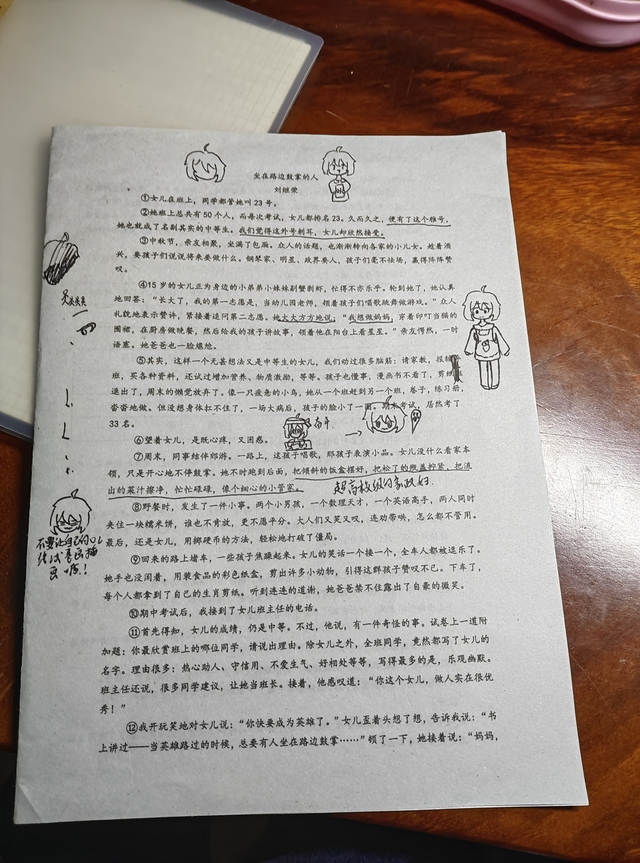 坐在路边鼓掌的人
刘继荣
①女儿在班上，同学都管她叫23号。
②她班上总共有50个人，而每次考试，女儿都排名23。久而久之，便有了这个雅号，
她也就成了名副其实的中等生。我们觉得这外号刺耳，女儿却欣然接受。
③中秋节，亲友相聚，坐满了包厢。众人的话题，也渐渐转向各家的小儿女。趁着酒
兴，要孩子们说说将来要做什么。钢琴家、明星、政界要人，孩子们毫不怯场，赢得阵阵赞
叹。
④15岁的女儿正为身边的小弟弟小妹妹剔蟹剥虾，忙得不亦乐乎。轮到她了，她认真
地回答：“长大了，我的第一志愿是，当幼儿园老师，领着孩子们唱歌跳舞做游戏。”众人
礼貌地表示赞许，紧接着追问第二志愿。她大大方方地说：“我想做妈妈，穿着印叮当猫的
围裙，在厨房做晚餐，然后给我的孩子讲故事，领着他在阳台上看星星。”亲友愕然，一时
语塞。她爸爸也一脸尴尬。
⑤其实，这样一个无甚想法又是中等生的女儿，我们动过很多脑筋：请家教，报辅
班，买各种资料，还试过增加营养、物质激励，等等。孩子也懂事，漫画书不看了，剪纸
退出了，周末的懒觉放弃了。像一只疲惫的小鸟，她从一个班赶到另一个班，卷子，练习册，
沓沓地做。但没想身体扛不住了，一场大病后，孩子的脸小了一圈。期末考试，居然考了
33名。
⑥望着女儿，是既心疼，又困惑。
⑦周末，同事结伴郊游。一路上，这孩子唱歌，那孩子表演小品。女儿没什么看家本
领，只是开心地不停鼓掌。她不时跑到后面，把倾斜的饭盒摆好，把松了的瓶盖拧紧，把流
出的菜汁擦净，忙忙碌碌，像个细心的小管家。
超高校级的家政妇
⑧野餐时，发生了一件小事。两个小男孩，一个数理天才，一个英语高手，两人同时
夹住一块糯米饼，谁也不肯放，更不愿平分。大人们又笑又叹，连劝带哄，怎么都不管用。
最后，还是女儿，用掷硬币的方法，轻松地打破了僵局。
不要让自己的
⑨回来的路上堵车，一些孩子焦躁起来。女儿的笑话一个接一个，全车人都被逗乐了。
她手也没闲着，用装食品的彩色纸盒，剪出许多小动物，引得这群孩子赞叹不已。下车了，
每个人都拿到了自己的生肖剪纸。听到连连的道谢，她爸爸禁不住露出了自豪的微笑。
⑩期中考试后，我接到了女儿班主任的电话。
⑪首先得知，女儿的成绩，仍是中等。不过，他说，有一件奇怪的事。试卷上一道附
加题：你最欣赏班上的哪位同学，请说出理由。除女儿之外，全班同学，竟然都写了女儿的
名字。理由很多：热心助人、守信用、不爱生气、好相处等等，写得最多的是，乐观幽默。
班主任还说，很多同学建议，让她当班长。接着，他感叹道：“你这个女儿，做人实在很优
秀！”
⑫我开玩笑地对女儿说：“你快要成为英雄了。”女儿歪着头想了想，告诉我说：“书
上讲过——当英雄路过的时候，总要有人坐在路边鼓掌……”顿了一下，她接着说：“妈妈，